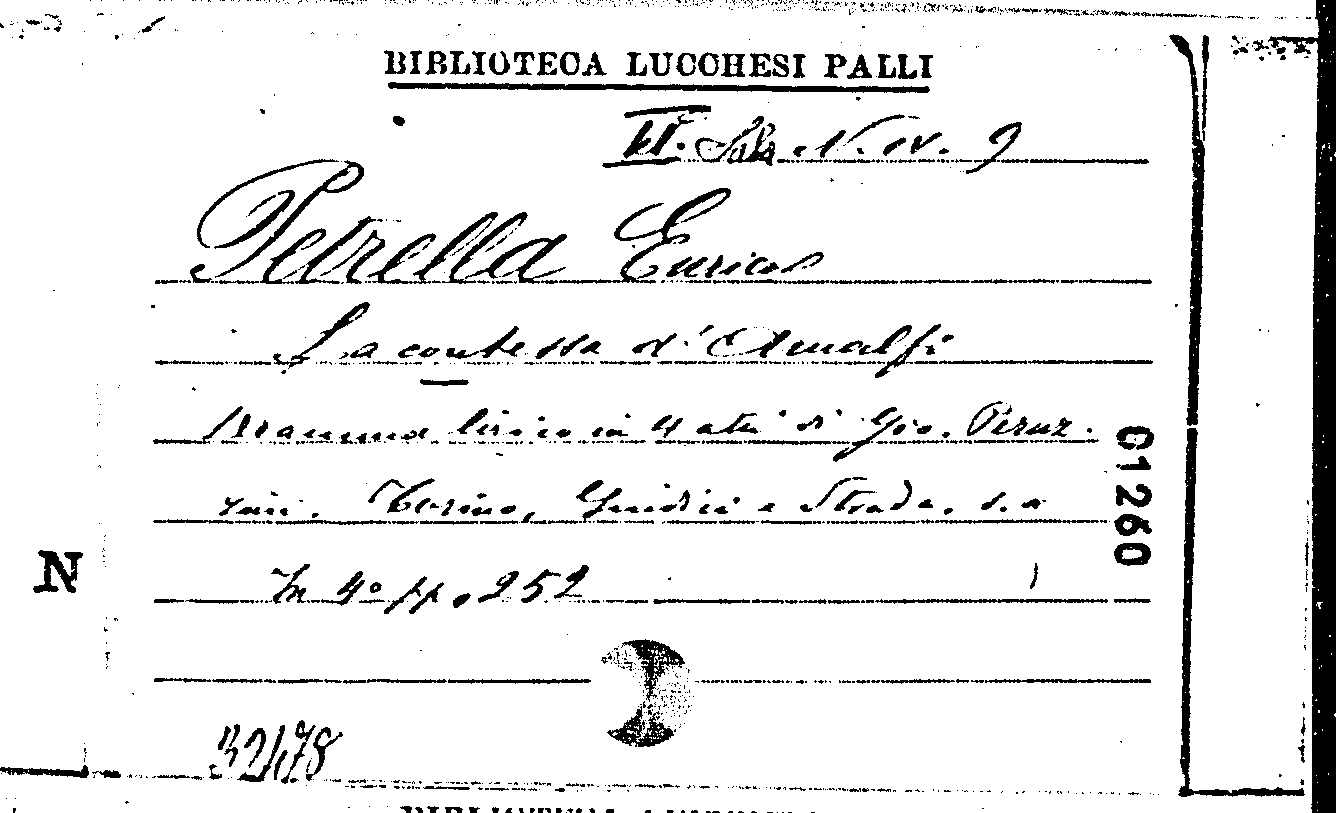 BIBLIOTECA LUCCHESI PALLI
VI. Sala N. IV. 9
Petrella Enrico
La contessa d'Amalfi
Dramma lirico in 4 atti di Gio. Peruz-
zini. Torino, Giudici e Strada, s.a
In 4º pp. 252
01260
N
32478